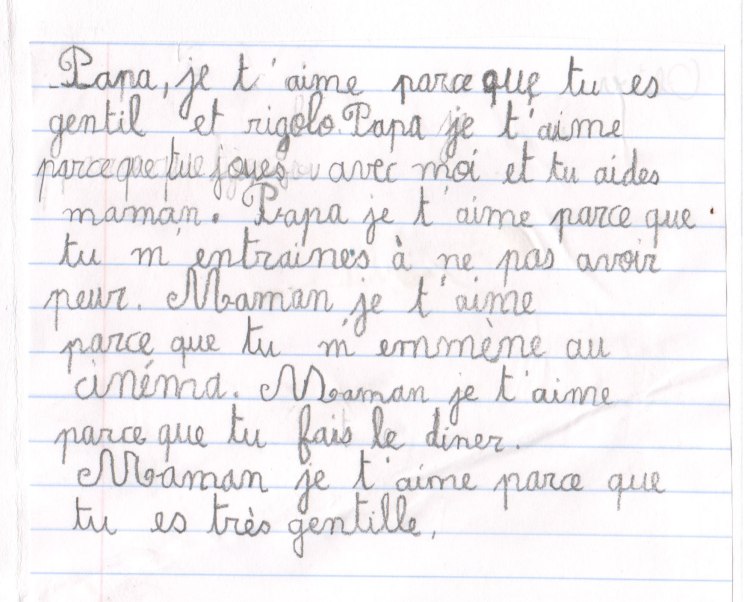 Papa, je t'aime parce que tu es
gentil et rigolo. Papa je t'aime
parce que tue joues avec moi et tu aides
maman. Papa je t'aime parce que
tu m'entraines à ne pas avoir
peur. Maman je t'aime
parce que tu m'emmène au
cinéma. Maman je t'aime
parce que tu fais le diner.
Maman je t'aime parce que
tu es très gentille,